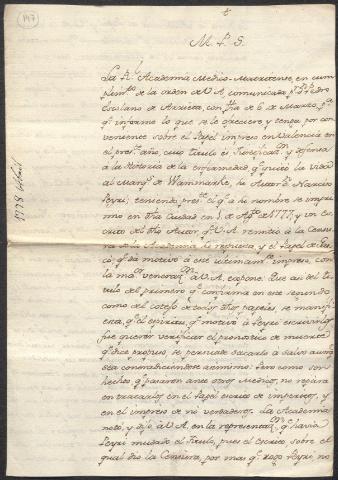 147
M. P. S.
La Rl. Academia Medico-Matritense, en cum
plimto. de la orden de V.A. comunicada pr. Dn. Pedro
Escolano de Arrieta, con fha de 6 de Marzo, pa.
qe. informe lo que se le ofreciere y tenga por con
veniente sobre el Papel impreso en Valencia en
el preste. año, cuio titulo es Justificacn. y defensa
à la Historia de la enfermedad qe. quitò la vida
al cuang. de Wanmarke, su Autor Dn. Narciso
Peyri; teniendo preste. el qe. a su nombre se impri
mio en dha Ciudad en 1 de Agto. de 1777, y un es
crito del dho Autor qe. V.A. remitió a la Censu
ra de la Academia, la respuesta, y el Papel de
qe. dà motivo à este ultimamte. impreso, con
la mayr. veneracn. à V.A. expone. Que asi del ti
tulo del primero qe. confirma en este segundo
como del cotejo de todos dhos papeles, se manifi
esta, qe. el espiritu, qe. motivò à Peyri escrivirlos
fue querer verificar el pronostico de muerte
qe. dice propuso, se persuade sacarlo à salvo aunqe.
sea contradiciendose asimismo: Pero como son
hechos qe. pasaron ante otros Medicos, no repara
en tratarlos en el Papel escrito de imperitos, y
en el impreso de no verdaderos. La Academia
notò, y dijo à V.A. en la representacn. qe. havia
Peyri mudado el titulo, pues el escrito sobre el
qual dio la Censura, por mas qe. Peyri, no
1778 Abril